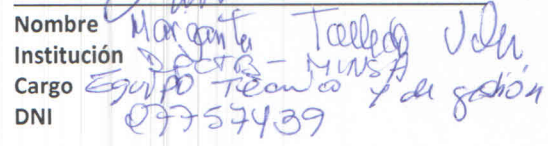 Nombre Margarita
Institución DPCTB - MINSA
Cargo Equipo Técnico y de gestión
DNI 07757439